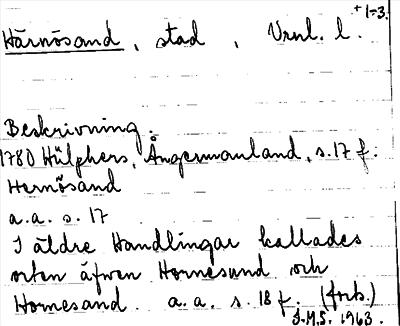 + 1-3.
Härnösand, stad, Vrnl. l.
Beskrivning:
1780 Hülphers, Ångermanland, s. 17 f.
Hernösand
a.a. s. 17
I äldre Handlingar kallades
orten äfven Hornesund och
Hornesand. a. a. s. 18 f. (forts.)
J.M.S. 1963.